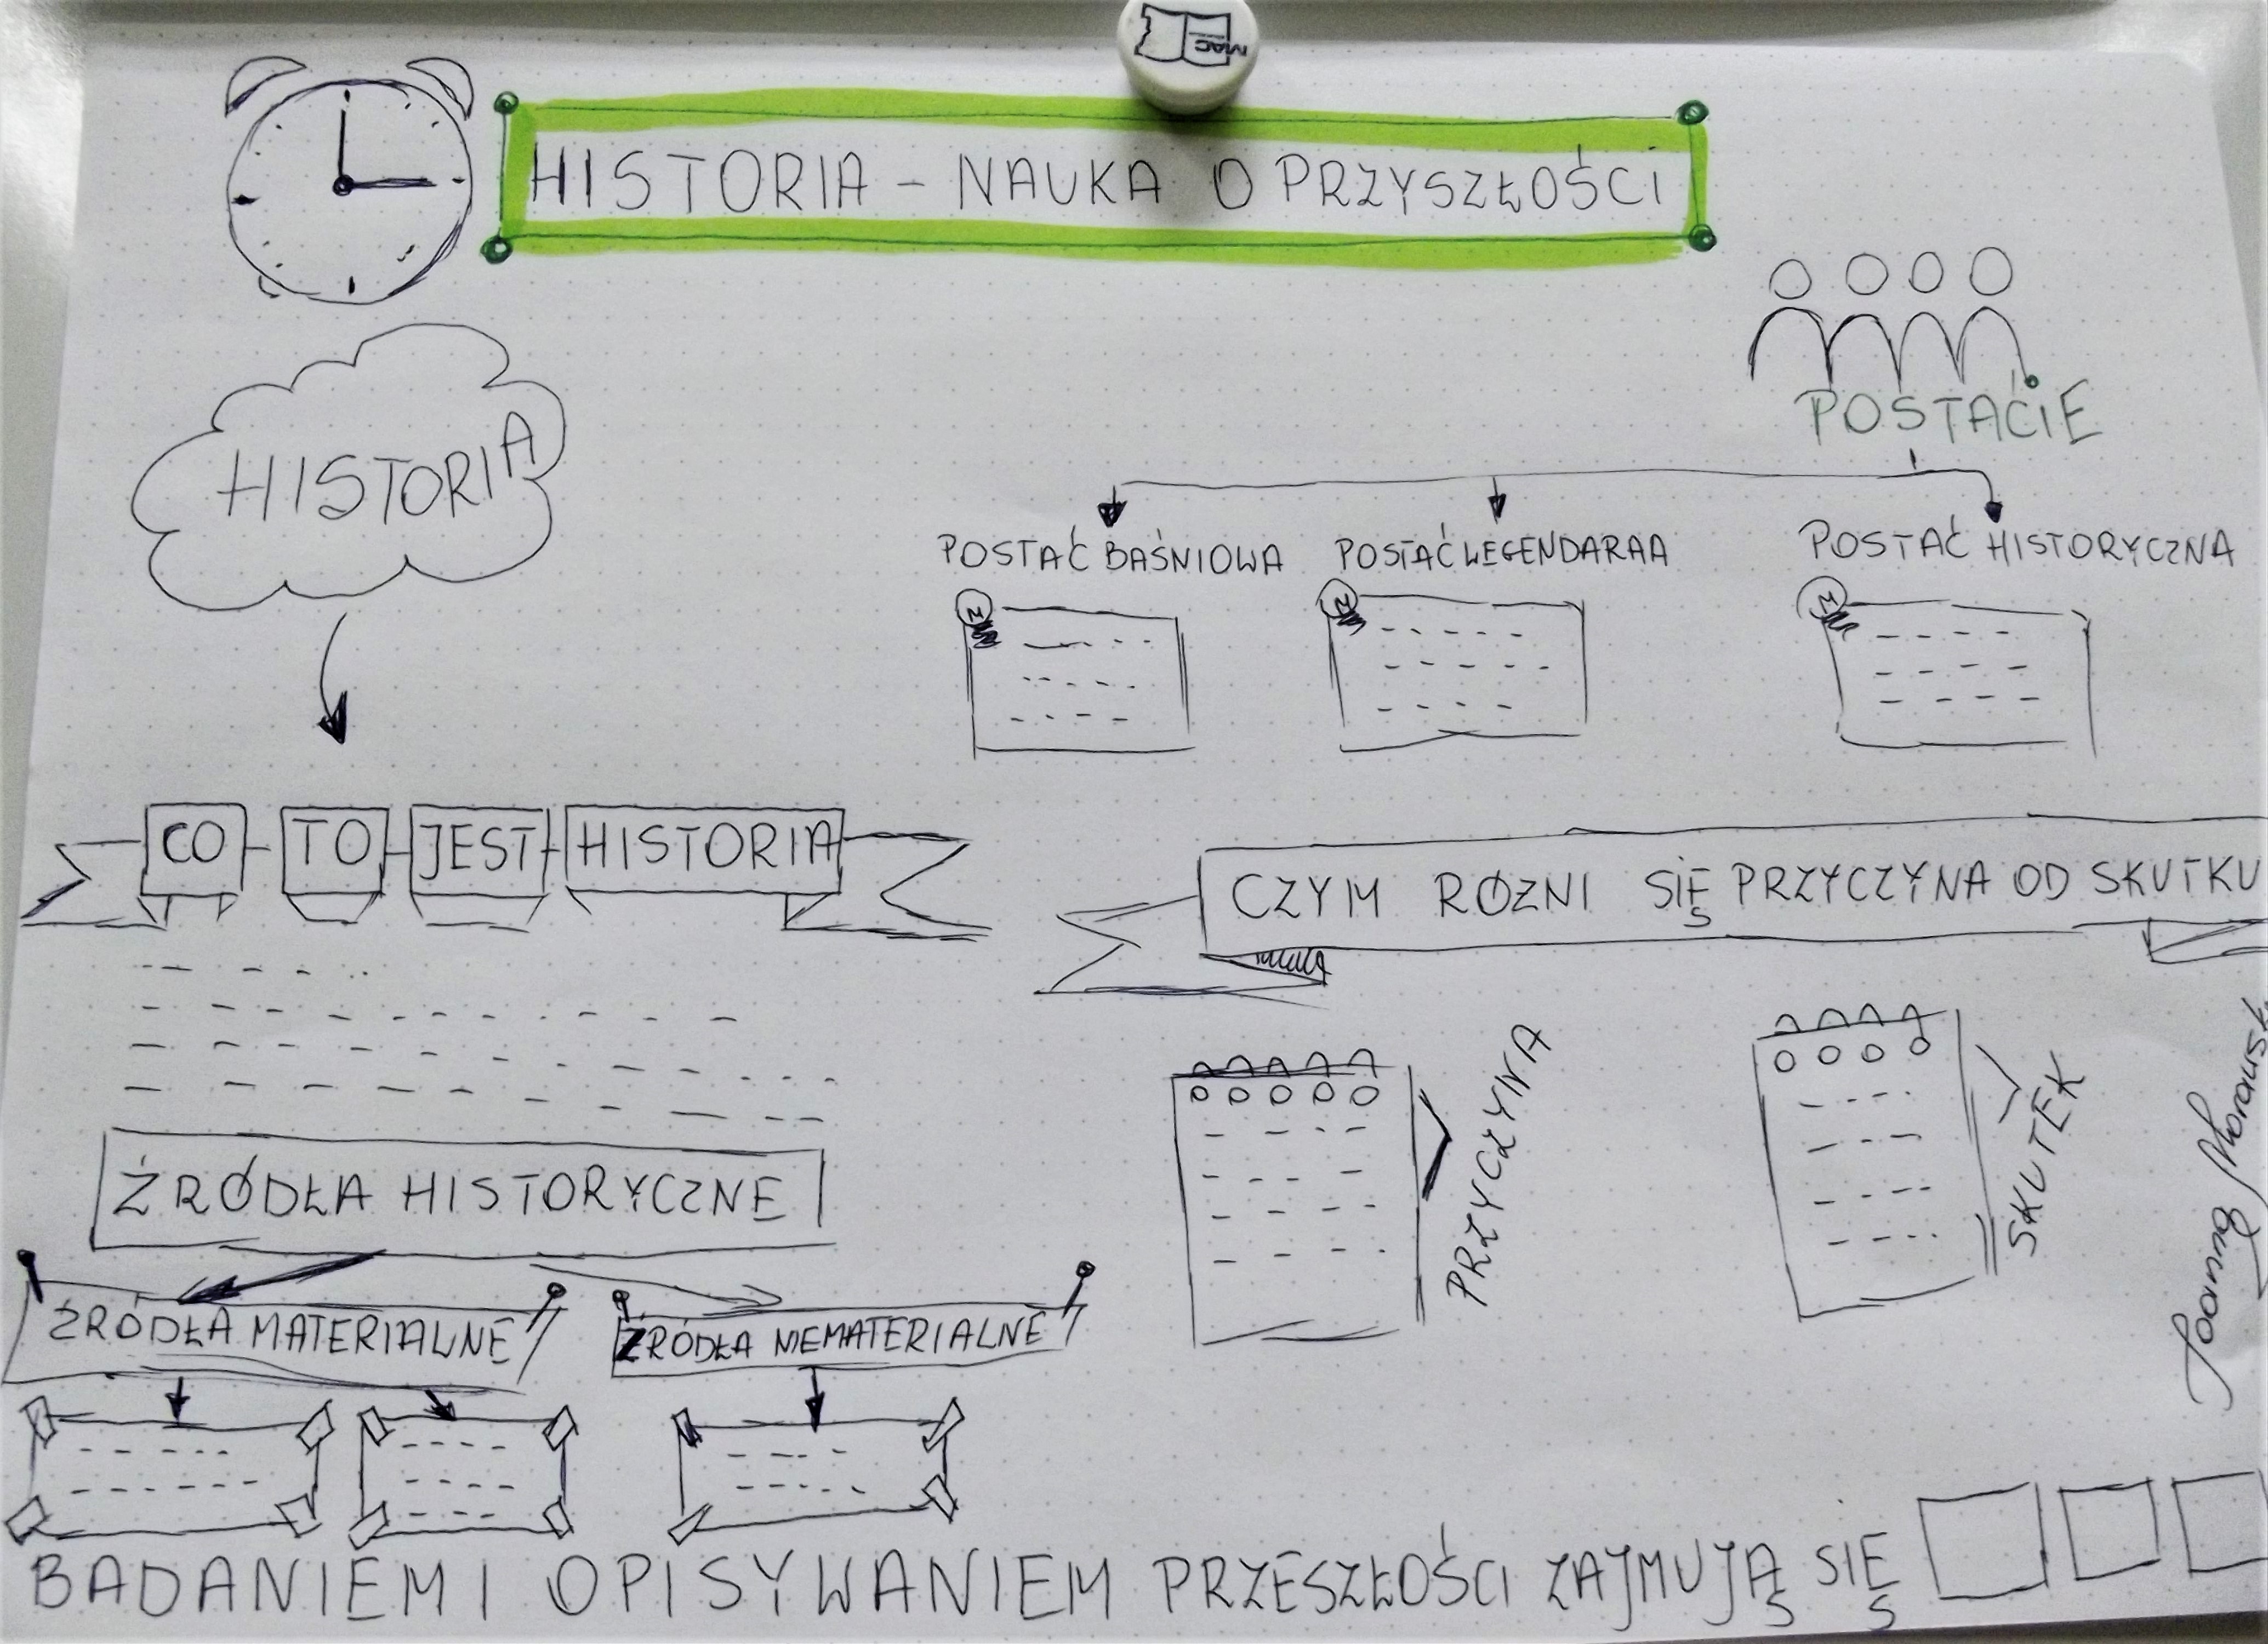 MAC
HISTORIA - NAUKA O PRZYSZŁOŚCI
HISTORIA
POSTACIE
POSTAĆ BAŚNIOWA
POSTAĆ LEGENDARAA
POSTAĆ HISTORYCZNA
CO TO JEST HISTORIA
CZYM RÓZNI SIĘ PRZYCZYNA OD SKUTKU
PRZYCZYNA
SKUTEK
ŹRÓDŁA HISTORYCZNE
ŹRÓDŁA MATERIALNE
ŹRÓDŁA NIEMATERIALNE
Joanna
BADANIEM I OPISYWANIEM PRZESZŁOŚCI ZAJMUJĄ SIĘ